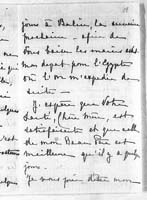 jours à Berlin, la semaine
prochaine, afin de
vous baiser les mains
mon départ pour l'Egypte
où l'on m'expédie de
suite –
J'espère que Votre
Santé, Chère
satisfaisante et que celle
de mon Beau Père est
meilleure qu'il y a
jours.
Je vous prie